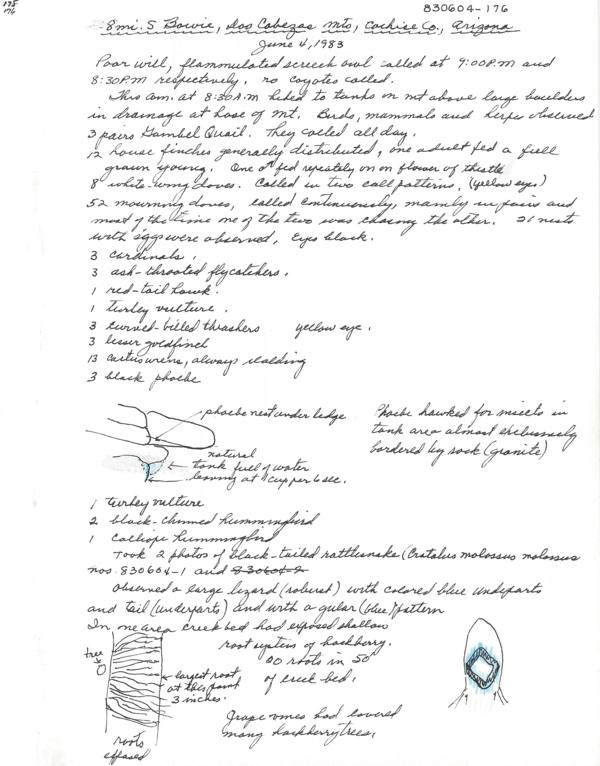 175
176
830604-176
8 mi. S Bowie, Dos Cabezas Mts, Cochise Co., Arizona
June 4, 1983
Poor will, flammulated screech owl called at 9:00 P.M and
8:30 P.M respectively. no coyotes called.
This am. at 8:30 A.M hiked to tanks on mt above large boulders
in drainage at base of mt. Birds, mammals and herps observed
3 pairs Gambel Quail. They called all day.
12 house finches generally distributed, one adult fed a full
grown young. One ♂ fed repeatedly on flower of thistle
8 white-wing doves. Called in two call patterns. (yellow eyes)
52 mourning doves, called continuously, mainly in pairs and
most of the time one of the two was chasing the other. 21 nests
with eggs were observed, Eyes black.
3 cardinals.
3 ash-throated flycatchers.
1 red-tail hawk.
1 turkey vulture.
3 curved-billed thrashers yellow eye.
3 lesser goldfinch
13 cactus wrens, always scolding
3 black phoebe
phoebe nest under ledge
natural
tank full of water
leaving at 1 cup per 6 sec.
Phoebe hawked for insects in
tank area almost exclusively
bordered by rock (granite)
1 turkey vulture
2 black-chinned hummingbird
1 calliope hummingbird
Took 2 photos of black-tailed rattlesnake (Crotalus molossus molossus
nos. 830604-1 and 830604-2
Observed a large lizard (robust) with colored blue underparts
and tail (underparts) and with a gular (blue) pattern
In one area creek bed had exposed shallow
root system of hackberry.
00 roots in 50'
of creek bed.
tree
largest root
at this point
3 inches.
roots
exposed
Grape vines had covered
many hackberry trees.